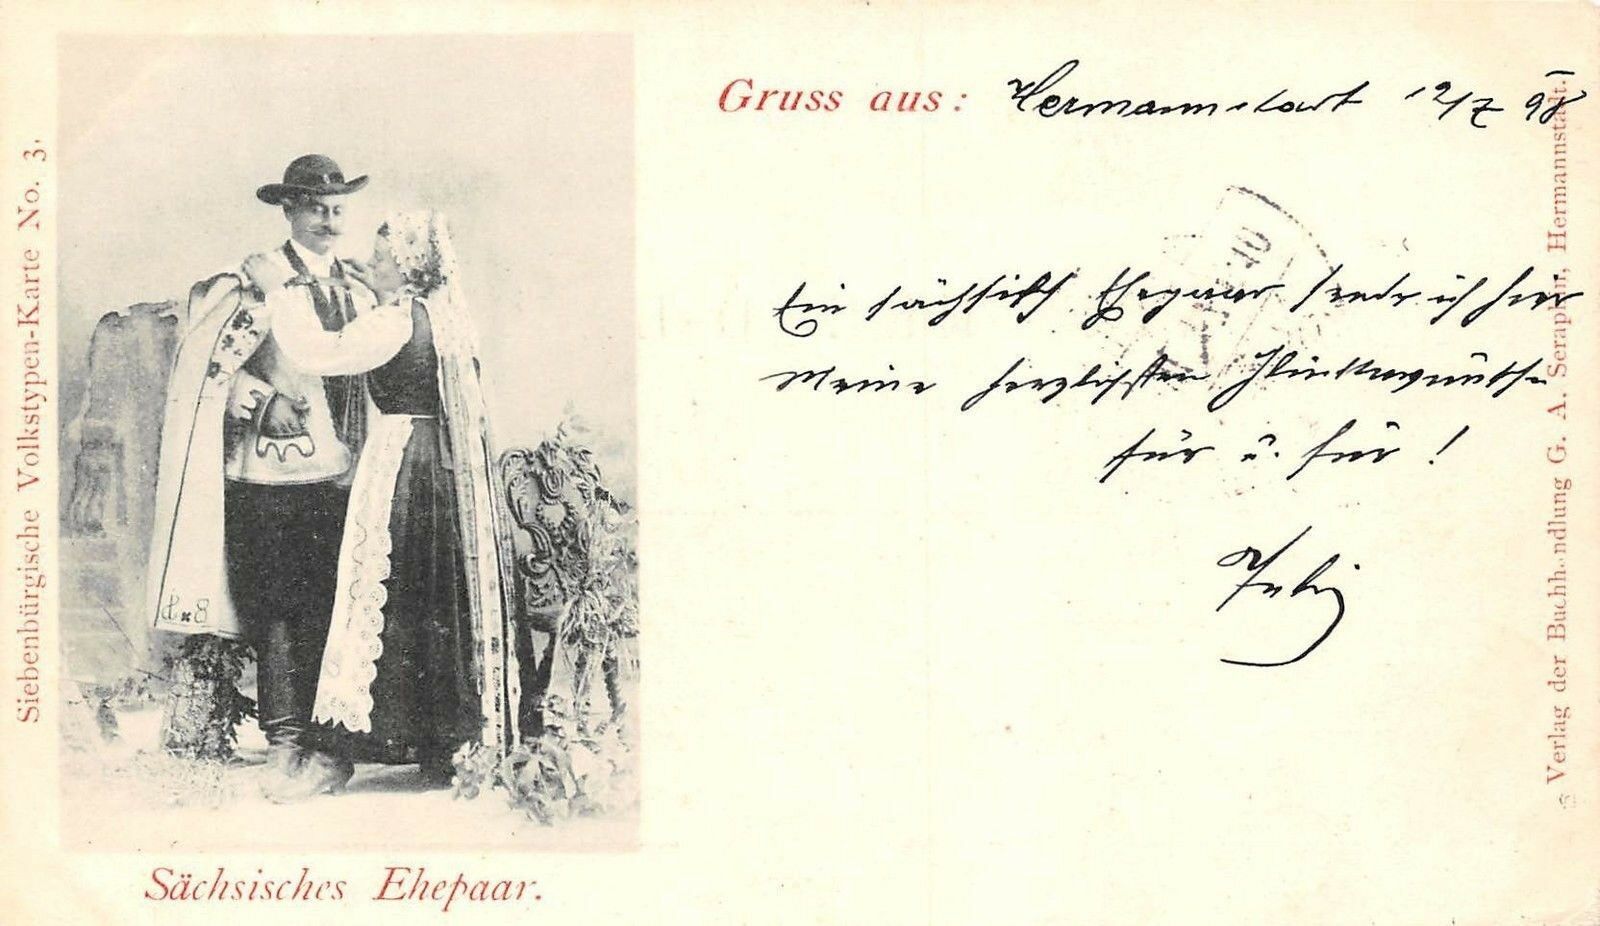 Siebenbürgische Volkstypen-Karte No. 3.
Gruss aus: Hermannstadt 12/7 98
Ein sächsisch Ehepaar sende ich hier
Meine herzlichsten Glückwünsche
für u. für!
Sächsisches Ehepaar.
Verlag der Buchhandlung G. A. Seraphin, Hermannstadt.